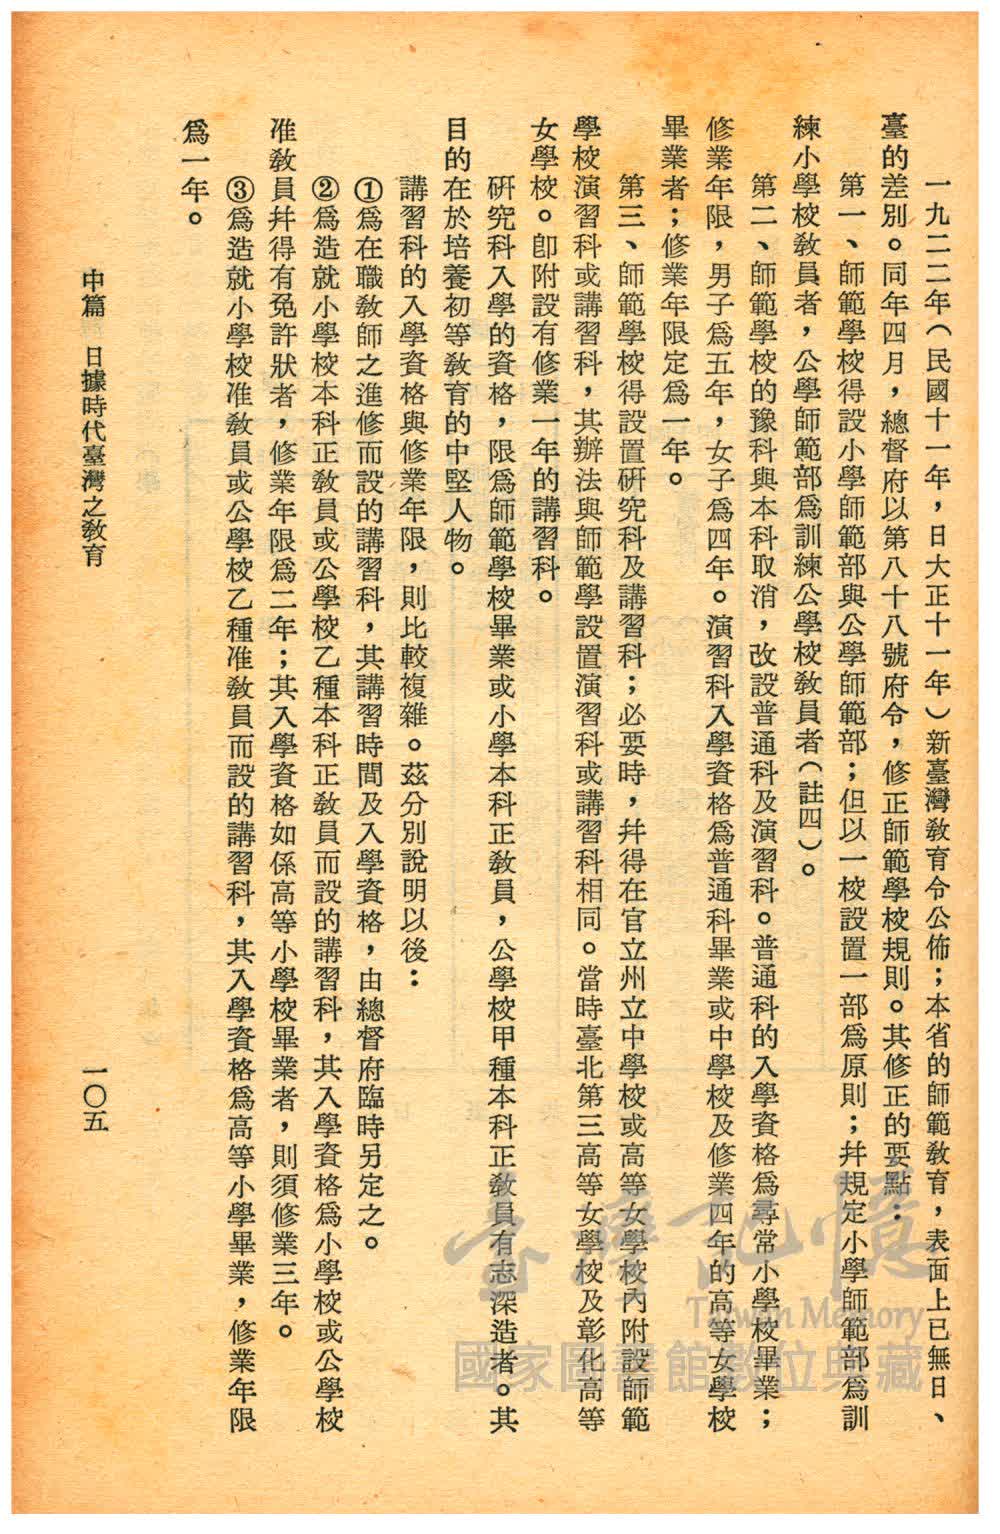 一九二二年（民國十一年，日大正十一年）新臺灣教育令公佈；本省的師範教育，表面上已無日、
臺的差別。同年四月，總督府以第八十八號府令，修正師範學校規則。其修正的要點：
第一、師範學校得設小學師範部與公學師範部；但以一校設置一部爲原則；幷規定小學師範部爲訓
練小學校教員者，公學師範部爲訓練公學校教員者（註四）。
第二、師範學校的豫科與本科取消，改設普通科及演習科。普通科的入學資格爲尋常小學校畢業；
修業年限，男子爲五年，女子爲四年。演習科入學資格爲普通科畢業或中學校及修業四年的高等女學校
畢業者；修業年限定爲一年。
第三、師範學校得設置研究科及講習科；必要時，幷得在官立州立中學校或高等女學校內附設師範
學校演習科或講習科，其辦法與師範學設置演習科或講習科相同。當時臺北第三高等女學校及彰化高等
女學校。卽附設有修業一年的講習科。
研究科入學的資格，限爲師範學校畢業或小學本科正教員，公學校甲種本科正教員有志深造者。其
目的在於培養初等教育的中堅人物。
講習科的入學資格與修業年限，則比較複雜。茲分別說明以後：
①爲在職教師之進修而設的講習科，其講習時間及入學資格，由總督府臨時另定之。
②爲造就小學校本科正教員或公學校乙種本科正教員而設的講習科，其入學資格爲小學校或公學校
准教員幷得有免許狀者，修業年限爲二年；其入學資格如係高等小學校畢業者，則須修業三年。
③爲造就小學校准教員或公學校乙種准教員而設的講習科，其入學資格爲高等小學畢業，修業年限
爲一年。
中篇　日據時代臺灣之教育
一〇五
臺灣記憶
Taiwan Memory
國家圖書館數位典藏